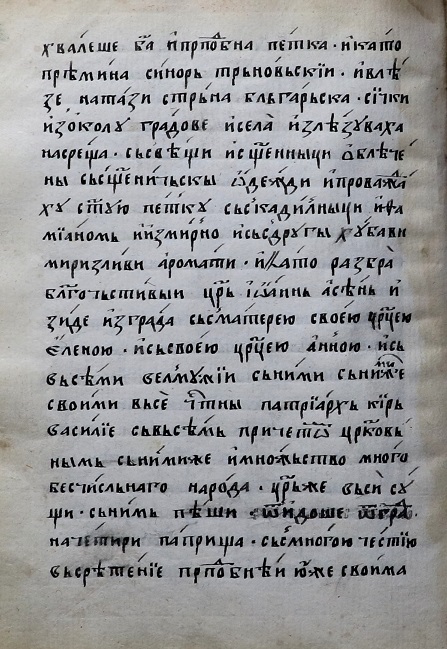 хвалеше б҃га и҆ прпⷣобна петка · и҆ като
прѣмина синорь трьновьскїи · и҆ влѣ
зе, на та́зи стрьна бльга́рьска · сѝчки
и҆зоколу гра́дове и҆ села̀ и҆злѣзуваха
на среща · сьсвѣщи и҆ сщ҃енныци ѻ҆блѣче
ны сьсщ҃еничьскы ѻ҆де́жди и҆ прова́жⷣа
ху ст҃ую петку сьскади́лныци и҆ ѳа
мїаномь и҆ измирно и҆ сьдругы ху́бави
миризливи аромати · и҆ като разбра̀
блг҃очьстивыи цр҃ь і҆ѡ҃аннь асѣнь и҆
зиде и҆зграда сьсматерею своею цр҃цею
є҆леною · и҆ сьсвоею цр҃цею а҆нною · и҆ сь
вьсѣми велмужїи сьними сьниⷨже
своими вьсе чт҃ны патрїархь кѵрь
василїе сьвьсѣмь причетѡⷨ цр҃ковь
нымь сьнимиже и҆ мно́жьство много
бесчи́сльнаго народа · цр҃ьже вьсѝ су
щи · сьнимь пѣши ѿидоше ѿграⷣ
на че́тири па́прища · сьсмно́гою че́стїю
вьсрѣте́нїе прпⷣобнѣи ю҆же свои́ма